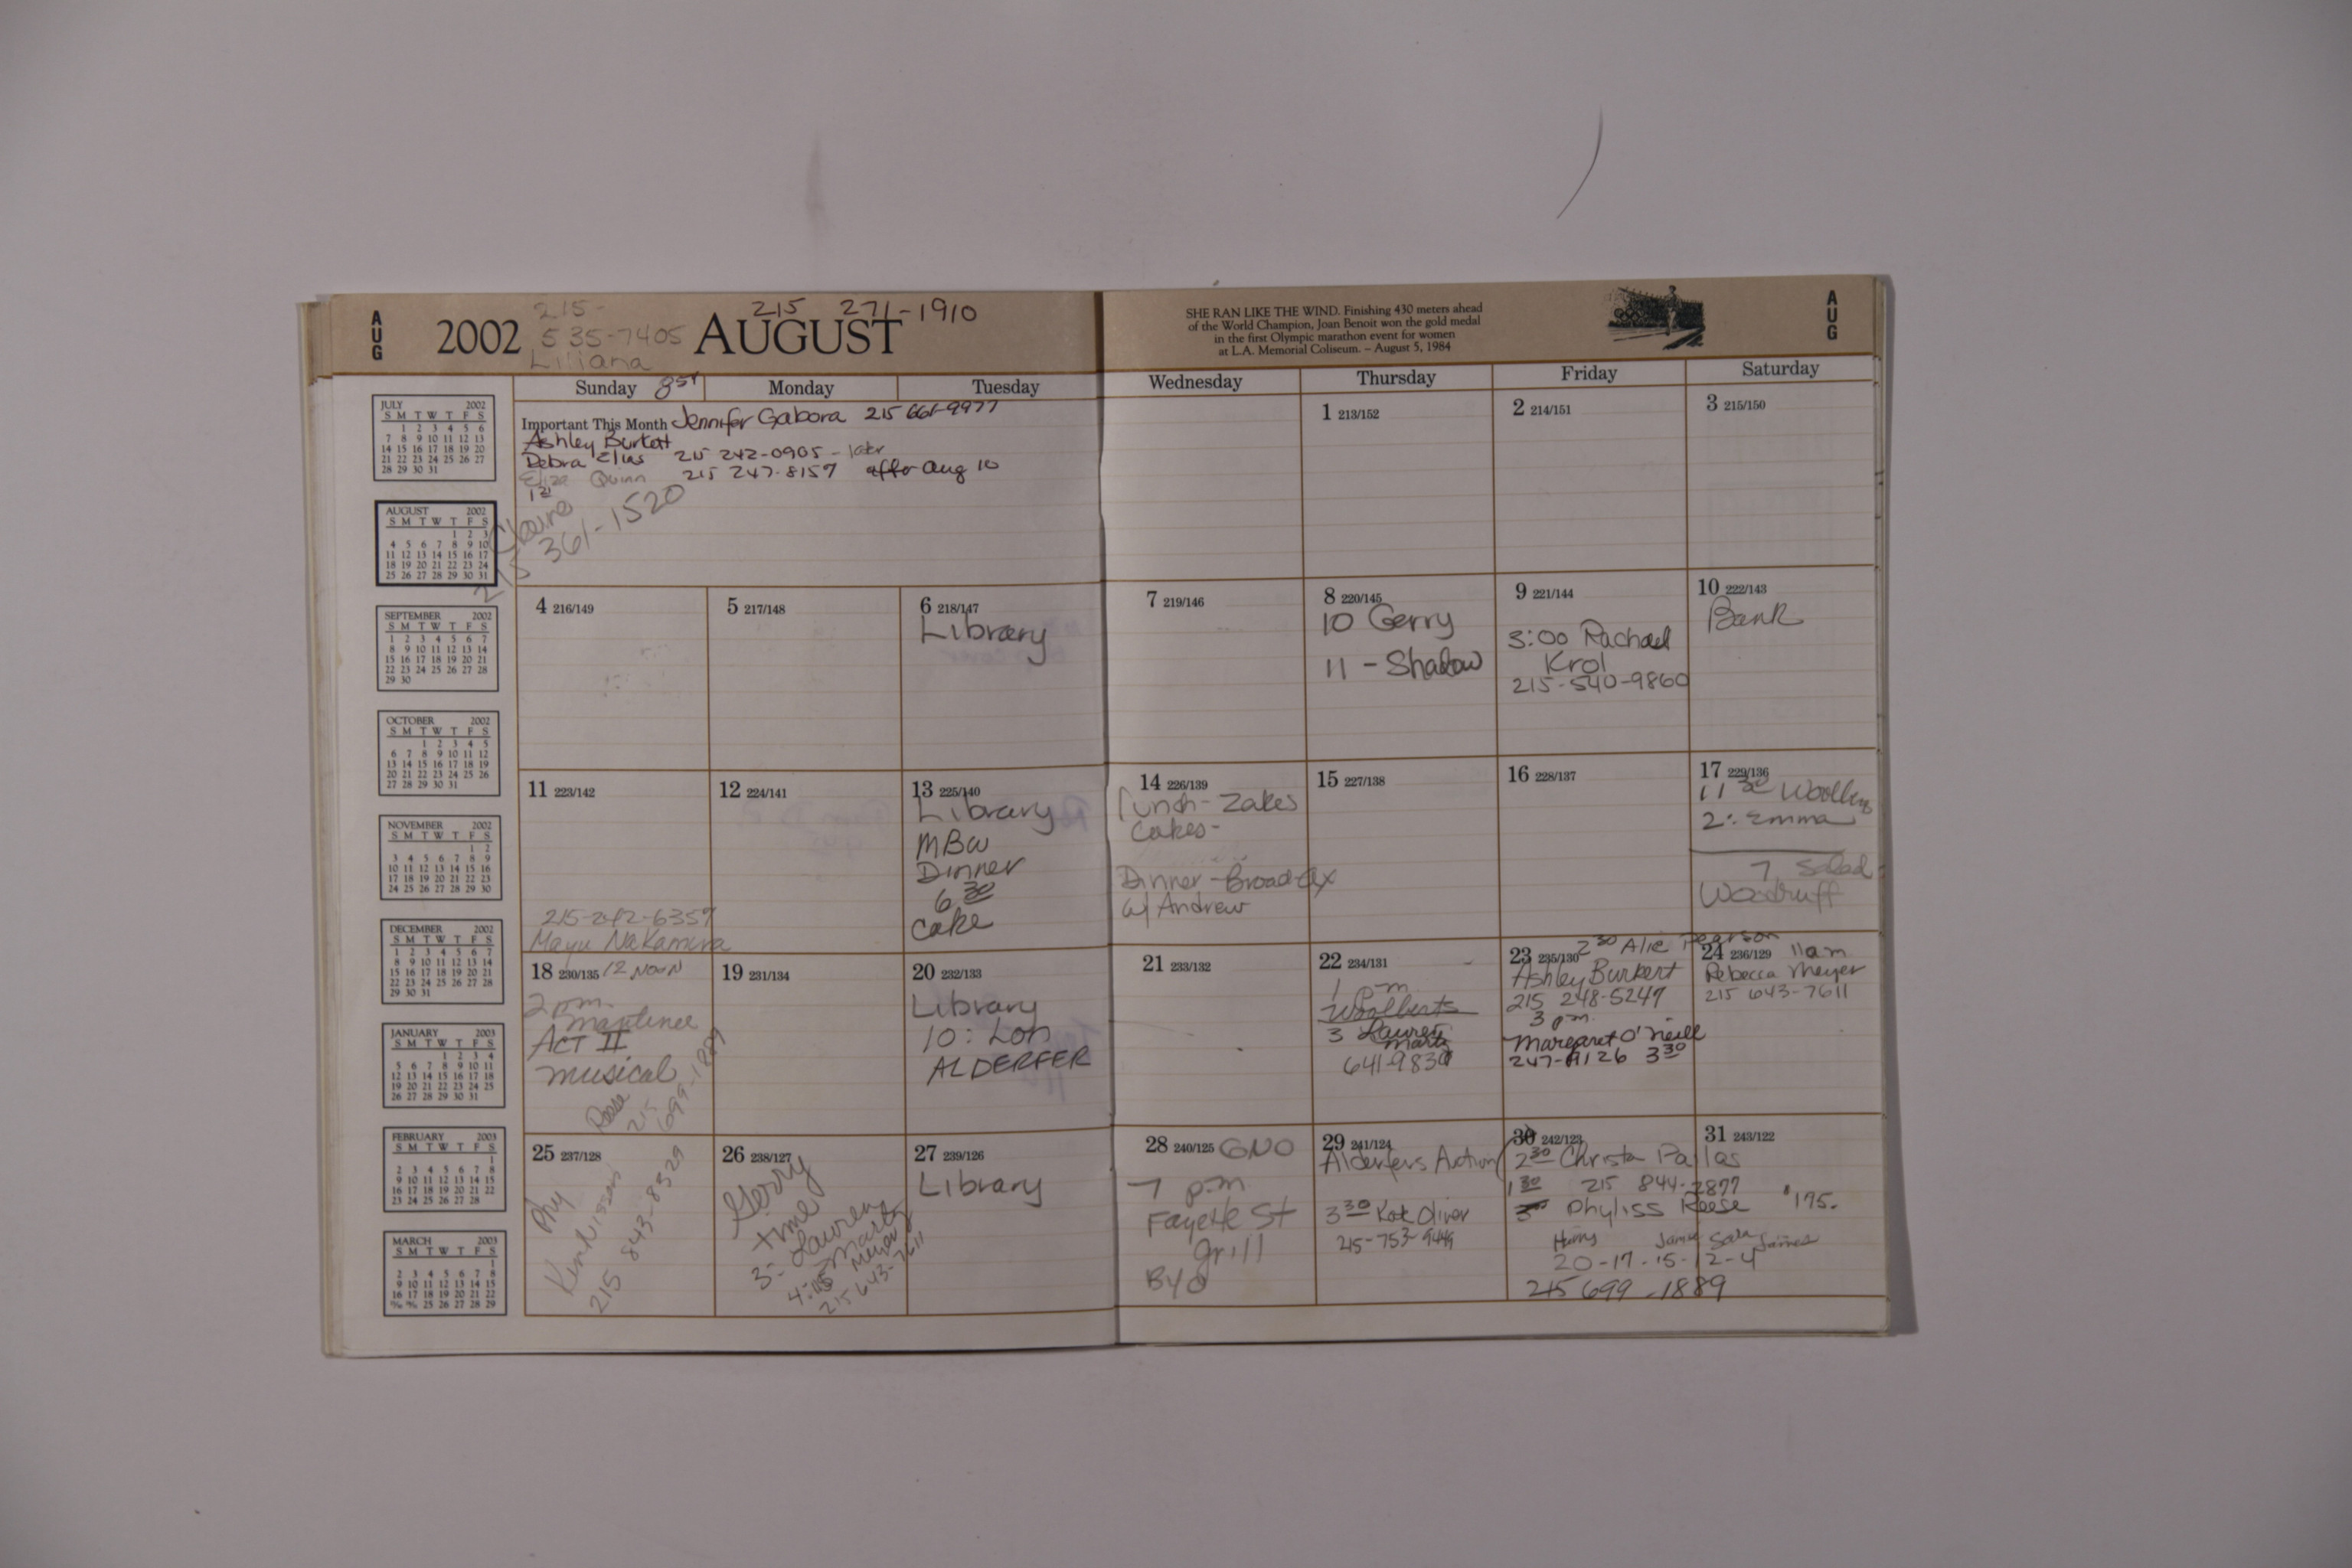 AUG
2002
215-
535-7405
Liliana
215 271-1910
AUGUST
SHE RAN LIKE THE WIND. Finishing 430 meters ahead
of the World Champion, Joan Benoit won the gold medal
in the first Olympic marathon event for women
at L.A. Memorial Coliseum. – August 5, 1984
AUG
Sunday Monday Tuesday Wednesday Thursday Friday Saturday
Important This Month Jennifer Gabora 215 661-9977
Ashley Burkert
Debra Elias 215 242-0905 - later
Quinn 215 247-8157 after Aug 10
Claire
215 361-1520
1 213/152
2 214/151
3 215/150
4 216/149
5 217/148
6 218/147
Library
7 219/146
8 220/145
10 Gerry
11 - Shadow
9 221/144
3:00 Rachael
Krol
215-540-9860
10 222/143
Bank
11 223/142
215-242-6357
Mayu Nakamura
12 224/141
13 225/140
Library
MBW
Dinner
6 30
cake
14 226/139
lunch - Zakes
Cakes -
Dinner - Broad-Ax
w/ Andrew
15 227/138
16 228/137
17 229/136
11 30
2: Emma
7 Salad
Woodruff
18 230/135 12 NOON
2 pm
matinee
ACT II
musical
Reese
215
699-1889
19 231/134
20 232/133
Library
10: Lon
ALDERFER
21 233/132
22 234/131
1 pm
Woolberts
3 Lauren
Martz
641-9830
23 235/130 2 30 Alie Pearson
Ashley Burkert
215 248-5247
3 pm.
Margaret O'Neill
247-9126 3 30
24 236/129 11 am
Rebecca Meyer
215 643-7611
25 237/128
Phy
215 843-8529
26 238/127
Gerry
time
3- Lauren
Martz
4:15 Meyer
215 643-7611
27 239/126
Library
28 240/125 GNO
7 p.m
Fayette St
grill
BYO
29 241/124
Alderfers Auction
3 30 Kat Oliver
215-753-9449
30 242/123
2 30 Christa Pallas
1 30 215 844-2877
Phyliss Reese $195.
20-17-15-12-4
215 699-1889
31 243/122
JULY 2002
S M T W T F S
1 2 3 4 5 6
7 8 9 10 11 12 13
14 15 16 17 18 19 20
21 22 23 24 25 26 27
28 29 30 31
AUGUST 2002
S M T W T F S
1 2 3
4 5 6 7 8 9 10
11 12 13 14 15 16 17
18 19 20 21 22 23 24
25 26 27 28 29 30 31
SEPTEMBER 2002
S M T W T F S
1 2 3 4 5 6 7
8 9 10 11 12 13 14
15 16 17 18 19 20 21
22 23 24 25 26 27 28
29 30
OCTOBER 2002
S M T W T F S
1 2 3 4 5
6 7 8 9 10 11 12
13 14 15 16 17 18 19
20 21 22 23 24 25 26
27 28 29 30 31
NOVEMBER 2002
S M T W T F S
1 2
3 4 5 6 7 8 9
10 11 12 13 14 15 16
17 18 19 20 21 22 23
24 25 26 27 28 29 30
DECEMBER 2002
S M T W T F S
1 2 3 4 5 6 7
8 9 10 11 12 13 14
15 16 17 18 19 20 21
22 23 24 25 26 27 28
29 30 31
JANUARY 2003
S M T W T F S
1 2 3 4
5 6 7 8 9 10 11
12 13 14 15 16 17 18
19 20 21 22 23 24 25
26 27 28 29 30 31
FEBRUARY 2003
S M T W T F S
1
2 3 4 5 6 7 8
9 10 11 12 13 14 15
16 17 18 19 20 21 22
23 24 25 26 27 28
MARCH 2003
S M T W T F S
1
2 3 4 5 6 7 8
9 10 11 12 13 14 15
16 17 18 19 20 21 22
23/30 24/31 25 26 27 28 29